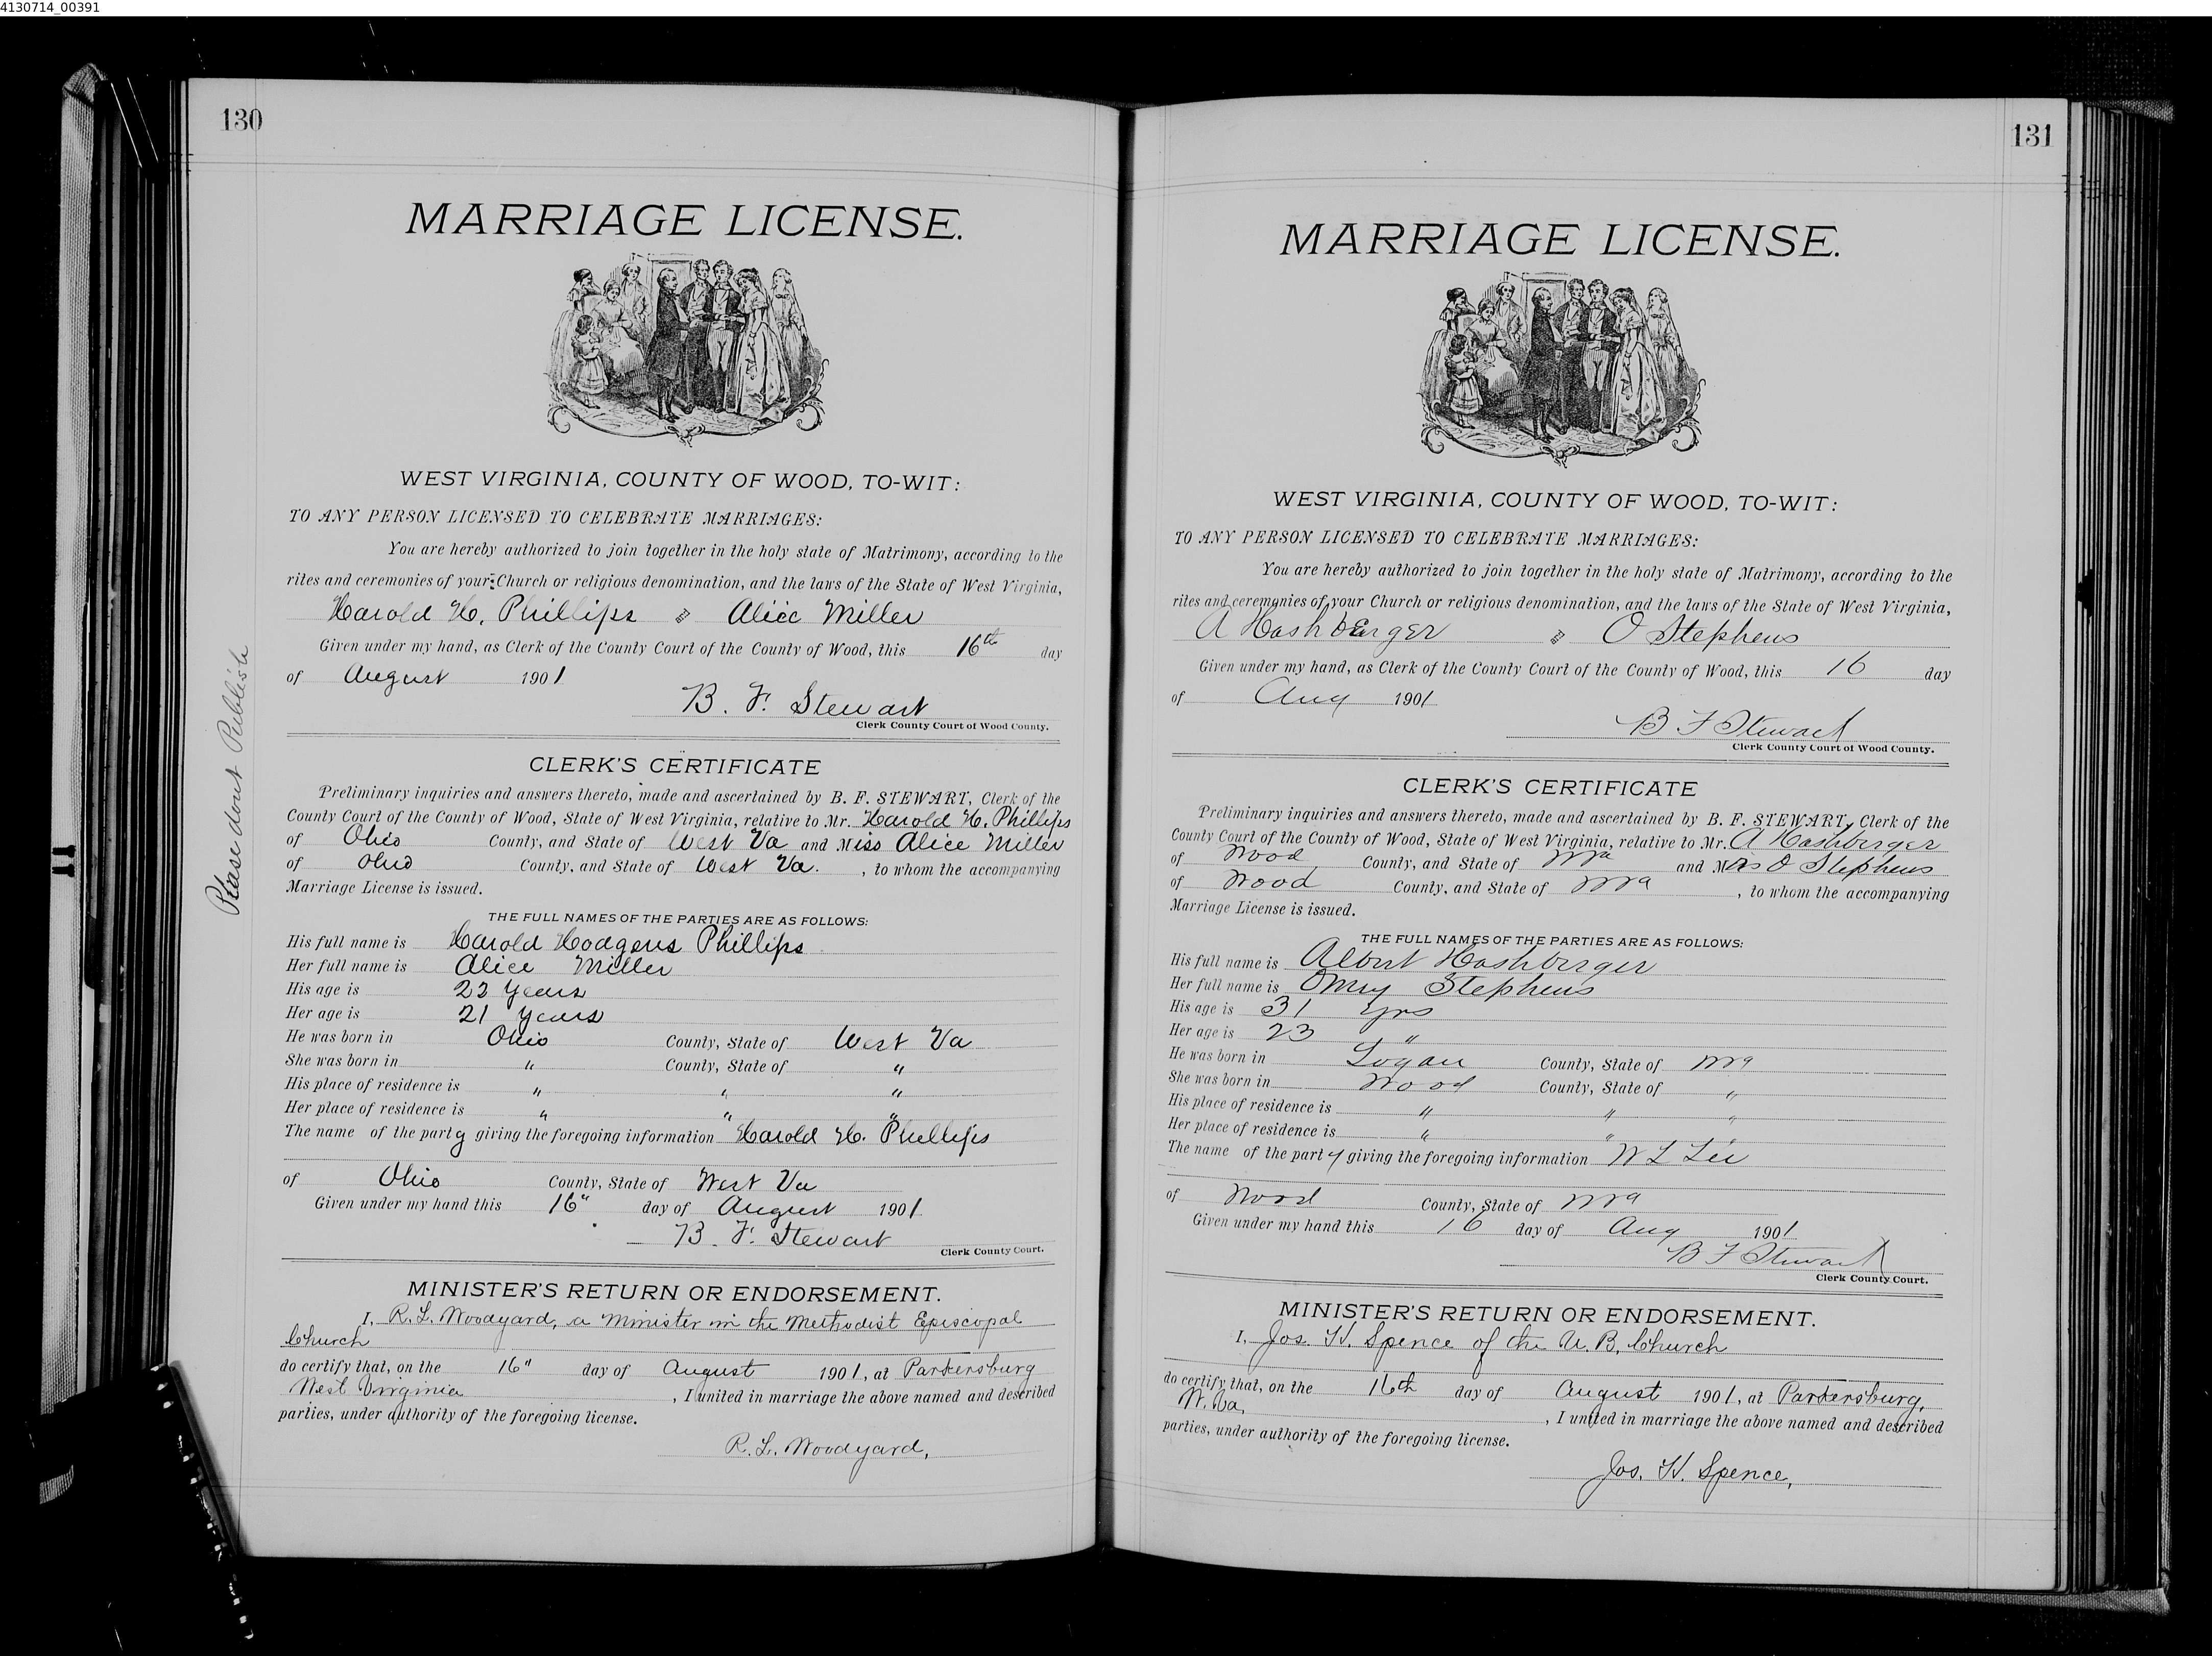 4130714_00391
130
MARRIAGE LICENSE.
WEST VIRGINIA, COUNTY OF WOOD, TO-WIT:
TO ANY PERSON LICENSED TO CELEBRATE MARRIAGES:
You are hereby authorized to join together in the holy state of Matrimony, according to the
rites and ceremonies of your Church or religious denomination, and the laws of the State of West Virginia,
Harold H. Phillips & Alice Miller
Given under my hand, as Clerk of the County Court of the County of Wood, this 16th day
of August 1901
B. F. Stewart
Clerk County Court of Wood County.
Please dont Publish
CLERK'S CERTIFICATE
Preliminary inquiries and answers thereto, made and ascertained by B. F. STEWART, Clerk of the
County Court of the County of Wood, State of West Virginia, relative to Mr. Harold H. Phillips
of Ohio County, and State of West Va and Miss Alice Miller
of Ohio County, and State of West Va. , to whom the accompanying
Marriage License is issued.
THE FULL NAMES OF THE PARTIES ARE AS FOLLOWS:
His full name is Harold Hodgens Phillips
Her full name is Alice Miller
His age is 22 years
Her age is 21 years
He was born in Ohio County, State of West Va
She was born in " County, State of "
His place of residence is " " "
Her place of residence is " " "
The name of the party giving the foregoing information Harold H. Phillips
of Ohio County, State of West Va
Given under my hand this 16" day of August 1901
B. F. Stewart
Clerk County Court.
MINISTER'S RETURN OR ENDORSEMENT.
I, R. L. Woodyard, a minister in the Methodist Episcopal
Church
do certify that, on the 16" day of August 1901, at Parkersburg
West Virginia , I united in marriage the above named and described
parties, under authority of the foregoing license.
R. L. Woodyard,
131
MARRIAGE LICENSE.
WEST VIRGINIA, COUNTY OF WOOD, TO-WIT:
TO ANY PERSON LICENSED TO CELEBRATE MARRIAGES:
You are hereby authorized to join together in the holy state of Matrimony, according to the
rites and ceremonies of your Church or religious denomination, and the laws of the State of West Virginia,
A Hashberger & O Stephens
Given under my hand, as Clerk of the County Court of the County of Wood, this 16 day
of Aug 1901
B F Stewart
Clerk County Court of Wood County.
CLERK'S CERTIFICATE
Preliminary inquiries and answers thereto, made and ascertained by B. F. STEWART, Clerk of the
County Court of the County of Wood, State of West Virginia, relative to Mr. A Hashberger
of Wood County, and State of Wva and Mrs O Stephens
of Wood County, and State of Wva , to whom the accompanying
Marriage License is issued.
THE FULL NAMES OF THE PARTIES ARE AS FOLLOWS:
His full name is Albert Hashberger
Her full name is Stephens
His age is 31 yrs
Her age is 23 "
He was born in Logan County, State of Wva
She was born in Wood County, State of "
His place of residence is " " "
Her place of residence is " " "
The name of the party giving the foregoing information W L Lee
of Wood County, State of Wva
Given under my hand this 16 day of Aug 1901
B F Stewart
Clerk County Court.
MINISTER'S RETURN OR ENDORSEMENT.
I, Jos. H. Spence of the U. B. Church
do certify that, on the 16th day of August 1901, at Parkersburg,
W. Va, , I united in marriage the above named and described
parties, under authority of the foregoing license.
Jos. H. Spence,